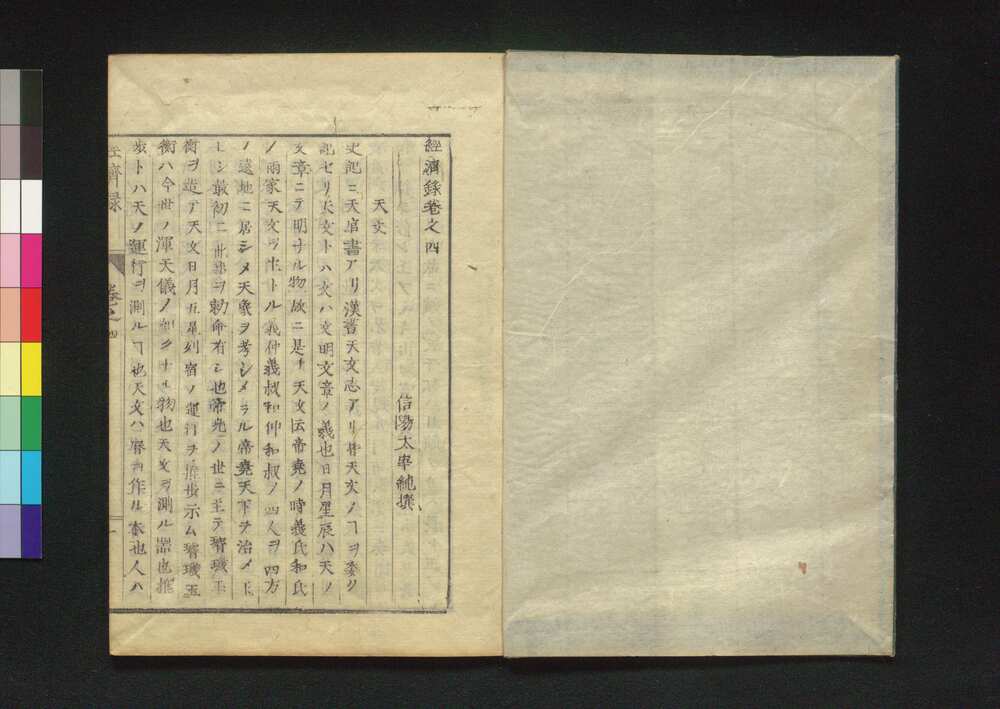 經濟録卷之四
信陽太宰純撰
天文
史記ニ天官書アリ漢書天文志アリ皆天文ノヿヲ委ク
記セリ天文トハ文ハ文明文章ノ義也日月星辰ハ天ノ
文章ニテ明ナル物故ニ是ヲ天文ト云帝堯ノ時羲氏和氏
ノ兩家天文ヲ司トル羲仲羲叔和仲和叔ノ四人ヲ四方
ノ遠地ニ居シメ天象ヲ考シメラル帝堯天下ヲ治メ玉
シ最初ニ此事ヲ勅命有シ也帝舜ノ世ニ至テ璿璣玉
衡ヲ造テ天文日月五星列宿ノ運行ヲ推歩示ム璿璣玉
衡ハ今世ノ渾天儀ノ如クナル物也天文ヲ測ル器也推
歩トハ天ノ運行ヲ測ルヿ也天文ハ暦ヲ作ル本也人ハ
經濟録
卷之四
一